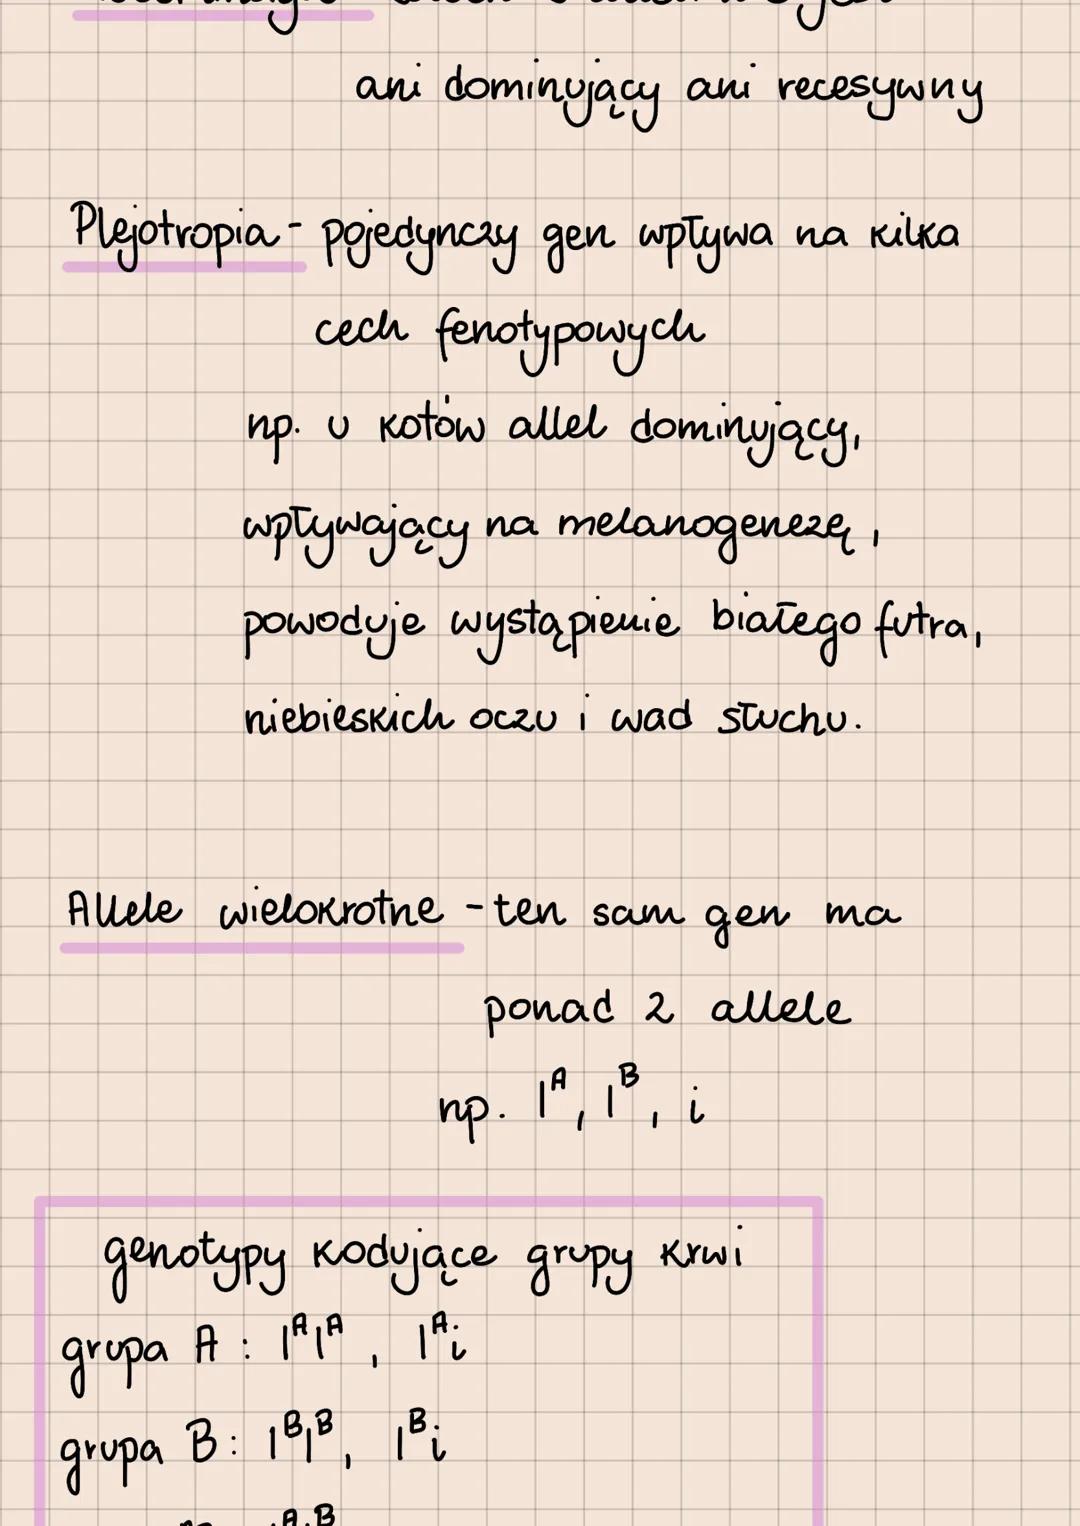 ani dominujący ani recesywny
Plejotropia - pojedynczy gen wpływa na kilka
cech fenotypowych
np. u kotów allel dominujący,
wpływający na melanogenezę,
powoduje wystąpienie białego futra,
niebieskich oczu i wad słuchu.
Allele wielokrotne - ten sam gen ma
ponad 2 allele
np. I^A, I^B, i
genotypy kodujące grupy krwi
grupa A: I^A I^A, I^A i
grupa B: I^B I^B, I^B i